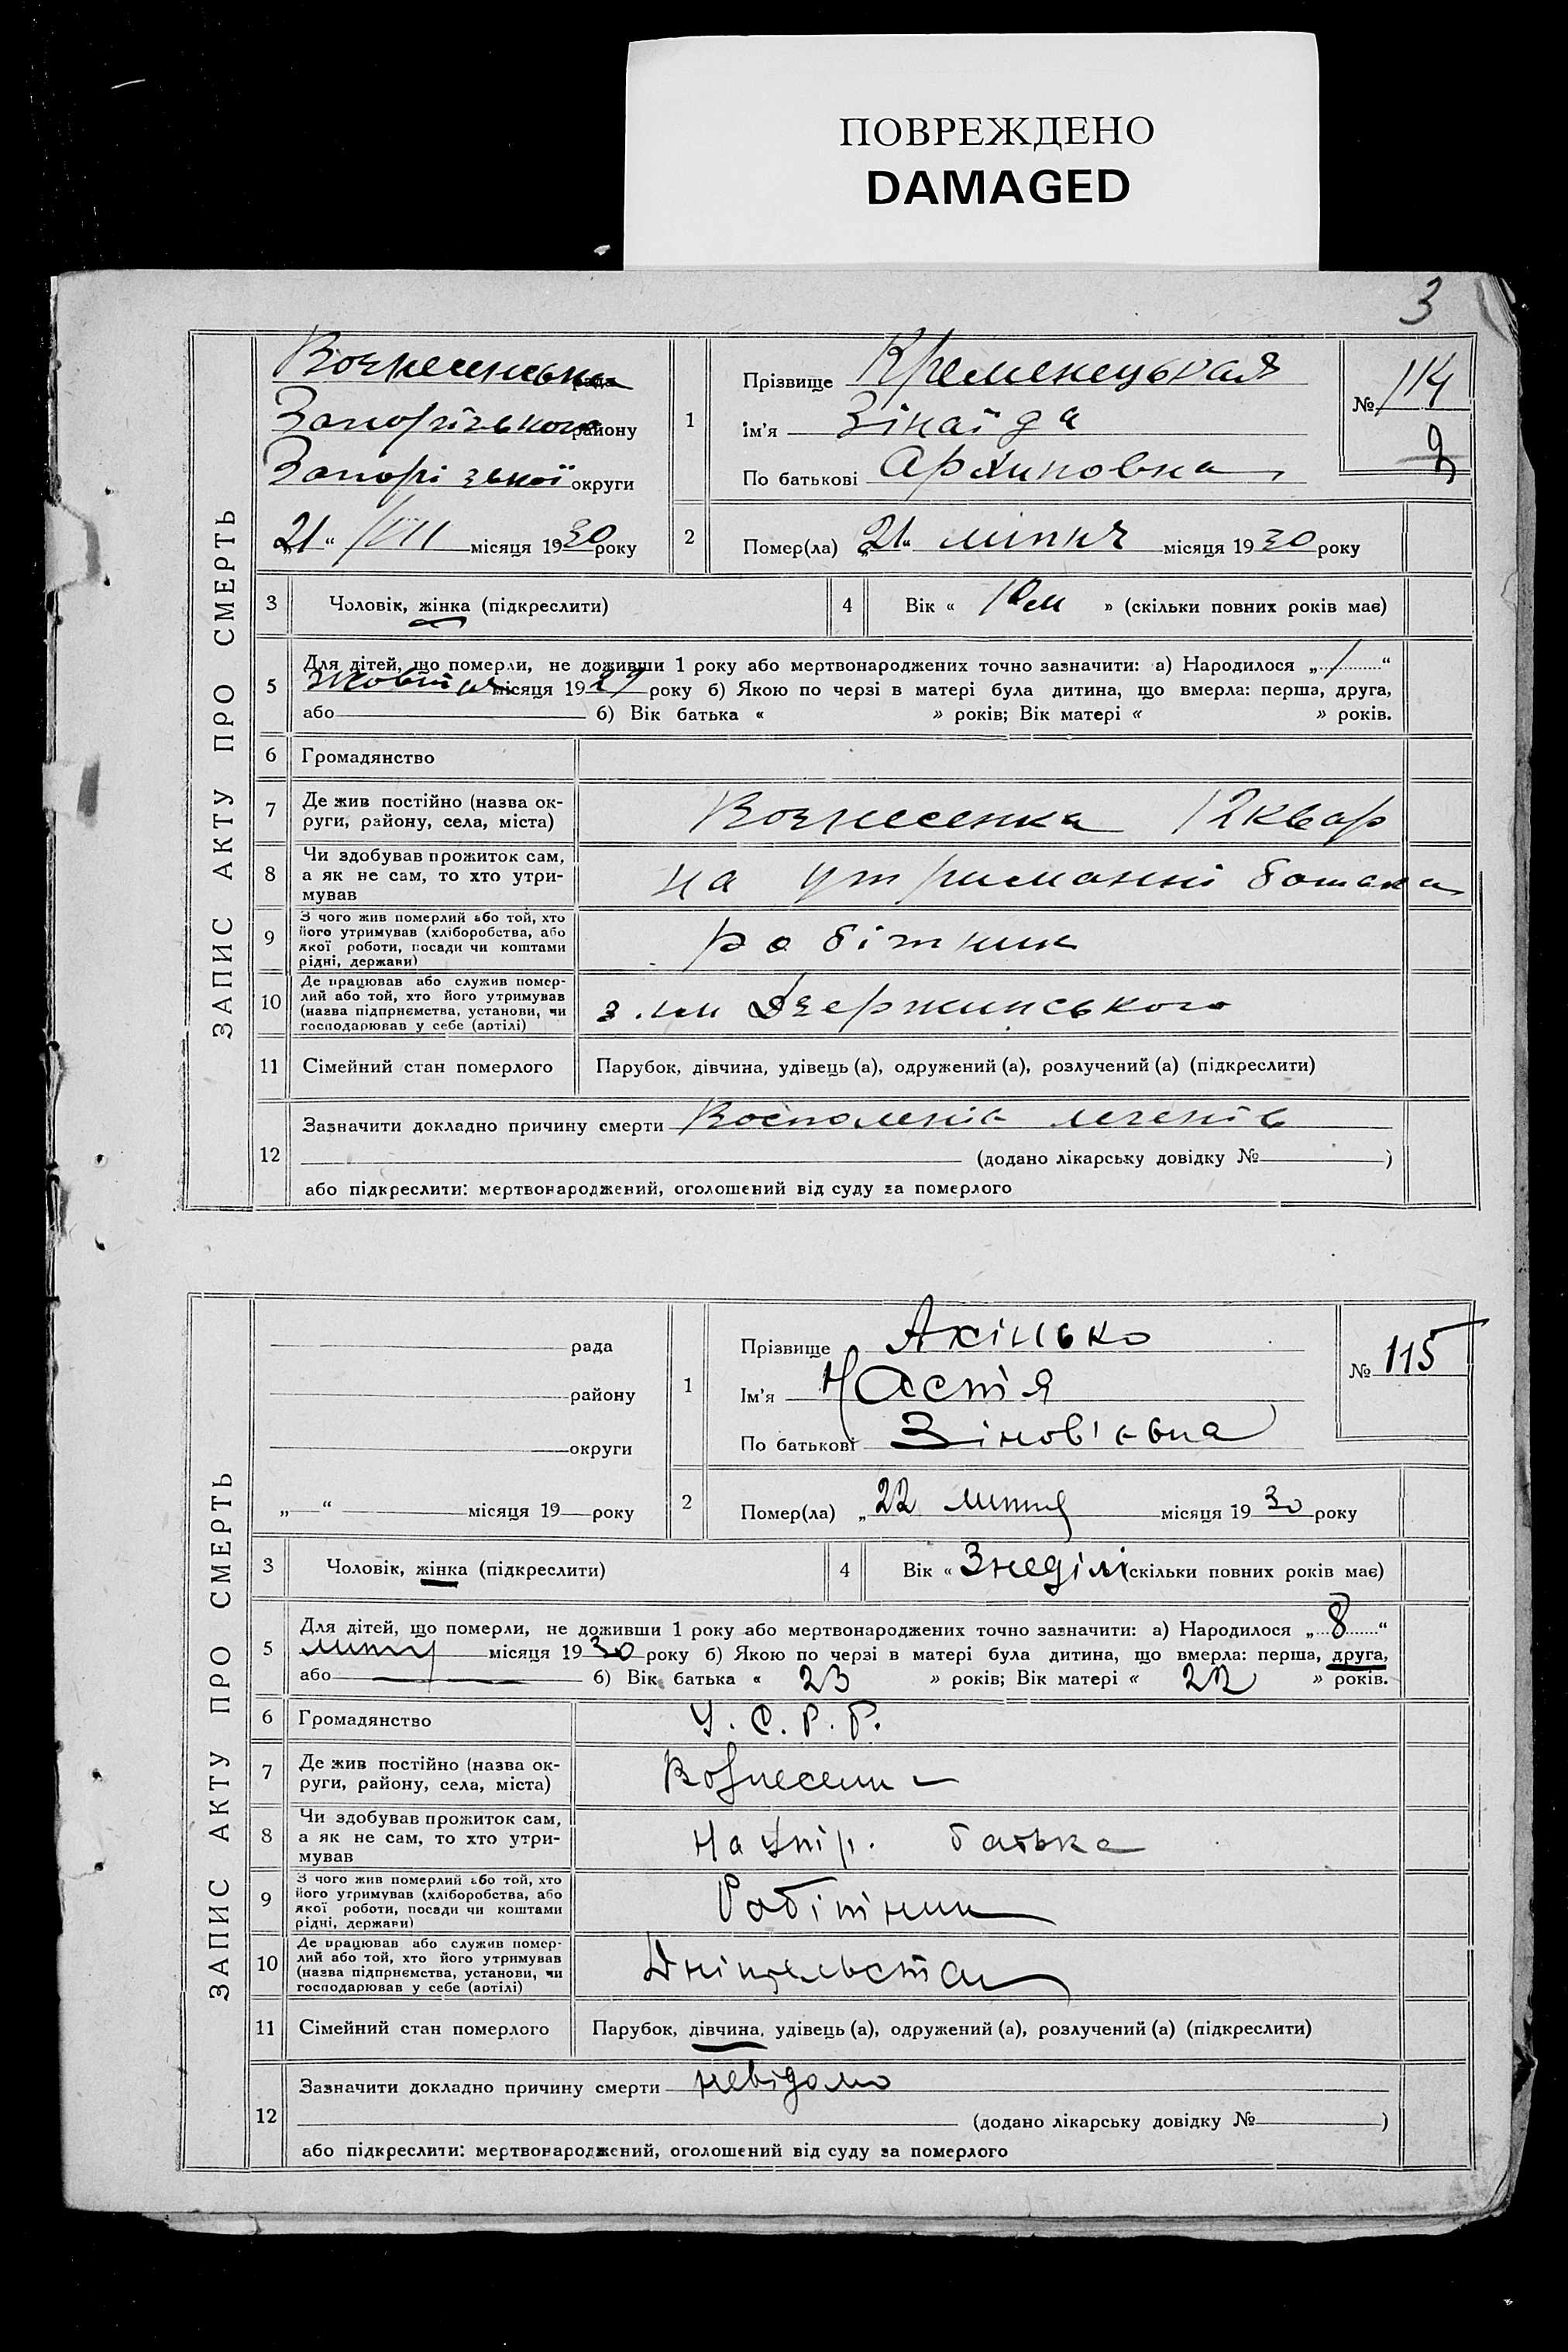 ПОВРЕЖДЕНО
DAMAGED
3
ЗАПИС АКТУ ПРО СМЕРТЬ
Вознесенська рада
Запорізького району
Запорізької округи
„21“ /VII місяця 1930 року
1
Прізвище Кременецькая
Ім'я Зінаїда
По батькові Архиповна
№ 114
2
Помер(ла) „21“ липня місяця 1930 року
3 Чоловік, жінка (підкреслити)
4 Вік « 10 м » (скільки повних років має)
5 Для дітей, що померли, не доживши 1 року або мертвонароджених точно зазначити: а) Народилося „ 1 “
Жовтня місяця 1929 року б) Якою по черзі в матері була дитина, що вмерла: перша, друга,
або б) Вік батька « » років; Вік матері « » років.
6 Громадянство
7 Де жив постійно (назва ок-
руги, району, села, міста) Вознесенка 12 квар
8 Чи здобував прожиток сам,
а як не сам, то хто утри-
мував на утриманні батька
9 З чого жив померлий або той, хто
його утримував (хліборобства, або
якої роботи, посади чи коштами
рідні, держави) робітник
10 Де працював або служив помер-
лий або той, хто його утримував
(назва підприємства, установи, чи
господарював у себе (артілі) з. ім Дзержинського
11 Сімейний стан померлого Парубок, дівчина, удівець (а), одружений (а), розлучений (а) (підкреслити)
12 Зазначити докладно причину смерти Воспаленіє легенів
(додано лікарську довідку № )
або підкреслити: мертвонароджений, оголошений від суду за померлого
ЗАПИС АКТУ ПРО СМЕРТЬ
рада
району
округи
„ “ місяця 19 року
1
Прізвище Ахінько
Ім'я Настя
По батькові Зінов'євна
№ 115
2
Помер(ла) „22 липня місяця 1930 року
3 Чоловік, жінка (підкреслити)
4 Вік « 3 неділі (скільки повних років має)
5 Для дітей, що померли, не доживши 1 року або мертвонароджених точно зазначити: а) Народилося „ 8 “
липня місяця 1930 року б) Якою по черзі в матері була дитина, що вмерла: перша, друга,
або б) Вік батька « 23 » років; Вік матері « 22 » років.
6 Громадянство У.С.Р.Р.
7 Де жив постійно (назва ок-
руги, району, села, міста) Вознесенка
8 Чи здобував прожиток сам,
а як не сам, то хто утри-
мував На утр. батька
9 З чого жив померлий або той, хто
його утримував (хліборобства, або
якої роботи, посади чи коштами
рідні, держави) Робітник
10 Де працював або служив помер-
лий або той, хто його утримував
(назва підприємства, установи, чи
господарював у себе (артілі) Дніпрельстан
11 Сімейний стан померлого Парубок, дівчина, удівець (а), одружений (а), розлучений (а) (підкреслити)
12 Зазначити докладно причину смерти невідомо
(додано лікарську довідку № )
або підкреслити: мертвонароджений, оголошений від суду за померлого